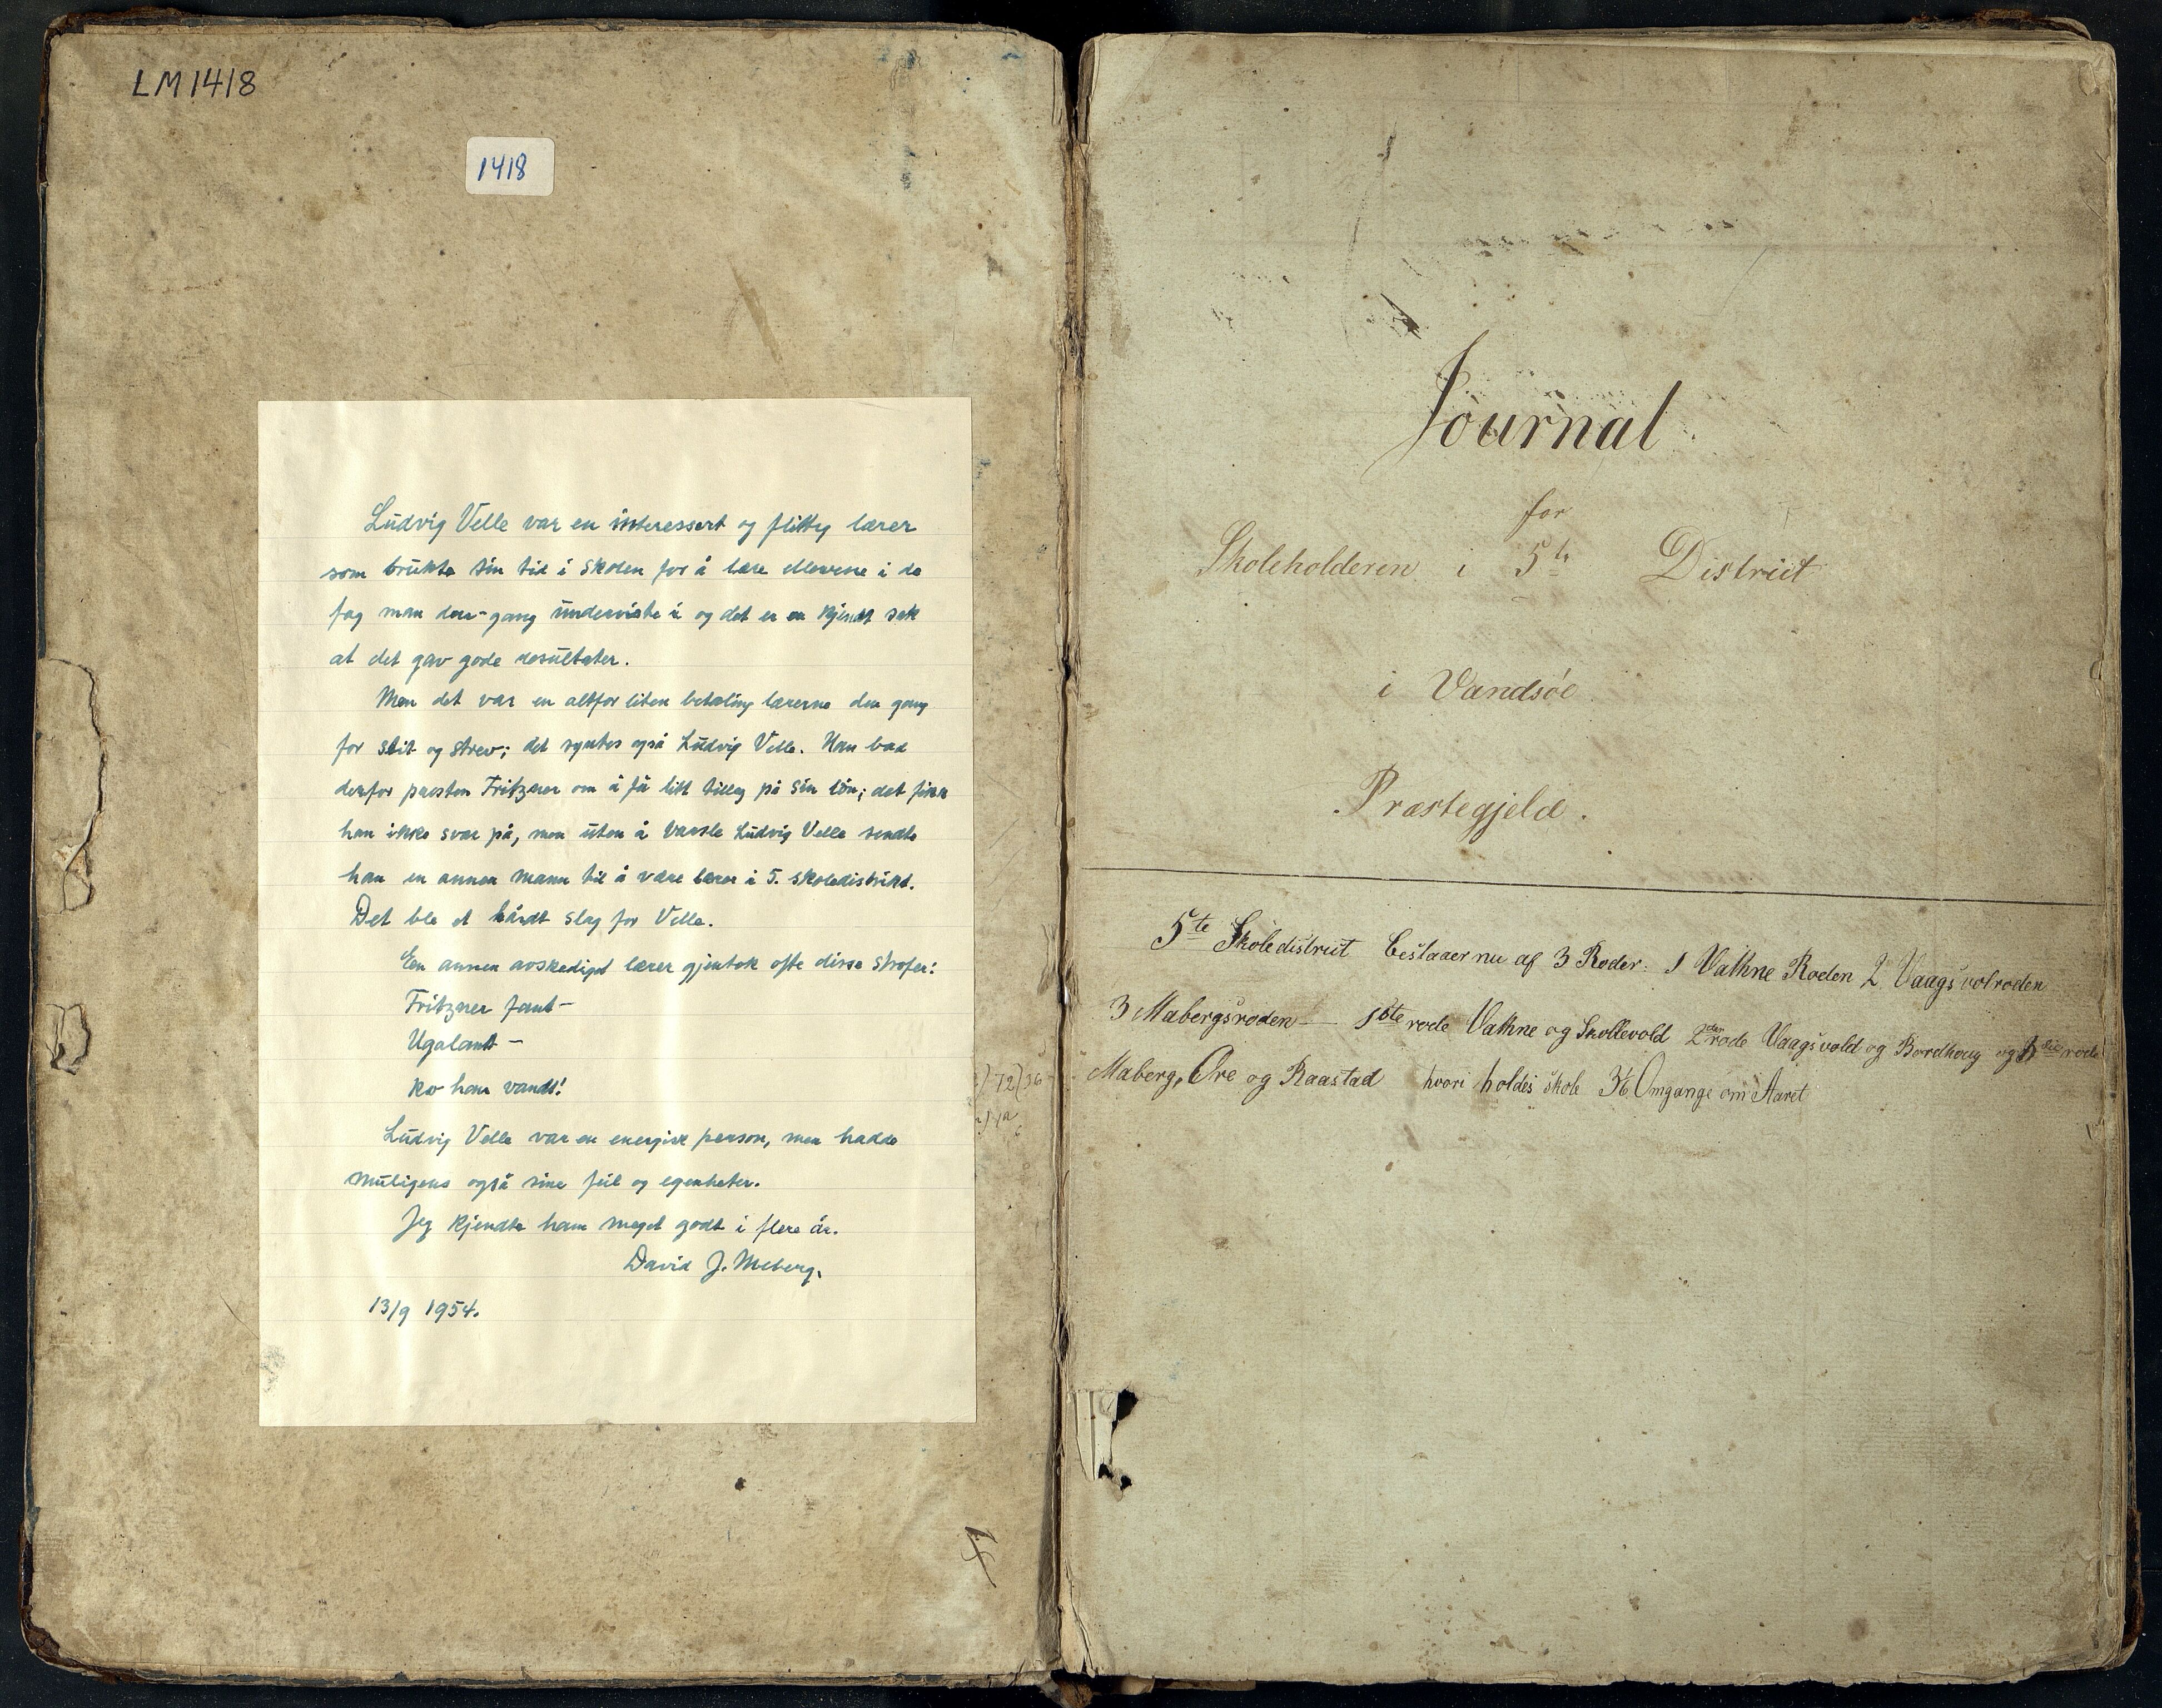 LM1418
1418
Ludvig Velle var en interessert og flittig lærer
som brukte sin tid i skolen for å lære elevene i de
fag man den-gang underviste i og det er en kjendt sak
at det gav gode resultater.
Men det var en altfor liten betaling lærerne den gang
for slit og strev; det syntes også Ludvig Velle. Han bad
derfor prosten Fritzner om å få litt tilleg på sin lön; det fikk
han ikke svar på, men uten å varsle Ludvig Velle sendte
han en annen mann til å være lærer i 5. skoledistrikt.
Det ble et hårdt slag for Velle.
En annen avskediget lærer gjentok ofte disse strofer:
Fritzner fant –
Ugalant –
ko han vandt!
Ludvig Velle var en energisk person, men hadde
muligens også sine feil og egenheter.
Jeg kjendte ham meget godt i flere år.
David J. Meberg.
13/9 1954.
72 36
Journal
for
Skoleholderen i 5te District
i Vandsöe
Præstegjeld.
5te Skoledistrict bestaaer nu af 3 Roder: 1 Vathne Roden 2 Vaagsvolroden
3 Mabergsroden — 1ste rode Vathne og Skollevold 2den rode Vaagsvold og Bordhoug og rode
Maberg, Ore og Raastad hvori holdes skole Omgange om Aaret